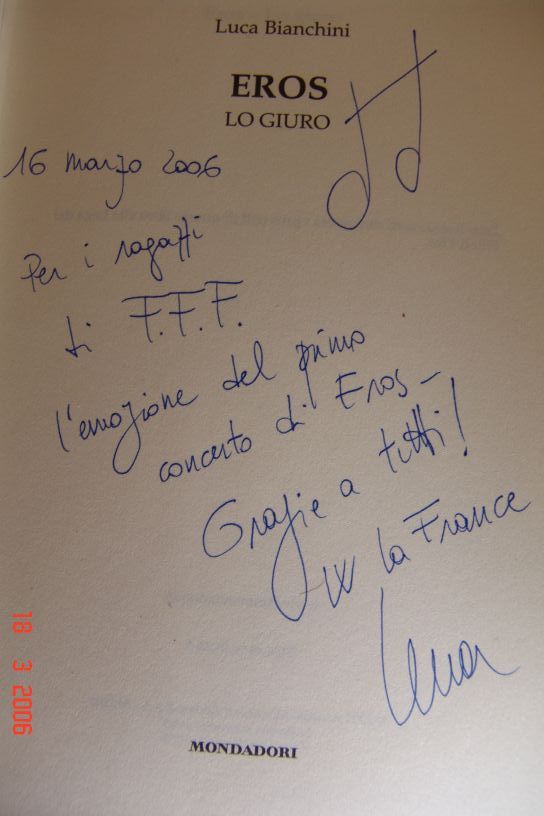 Luca Bianchini
EROS
LO GIURO
16 marzo 2006
Per i ragazzi
di F.F.F.
l'emozione del primo
concerto di Eros –
Grazie a tutti!
W la France
Luca
MONDADORI
18 3 2006